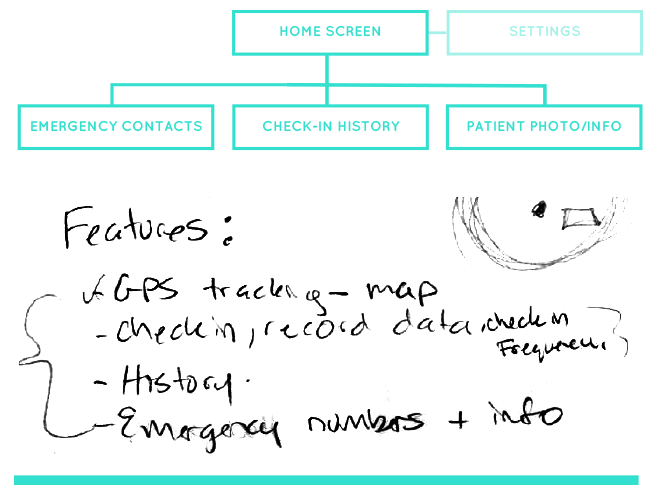 HOME SCREEN
SETTINGS
EMERGENCY CONTACTS
CHECK-IN HISTORY
PATIENT PHOTO/INFO
Features:
GPS tracking - map
- Checkin, record data, check in
- History.
- Emergency numbers + info